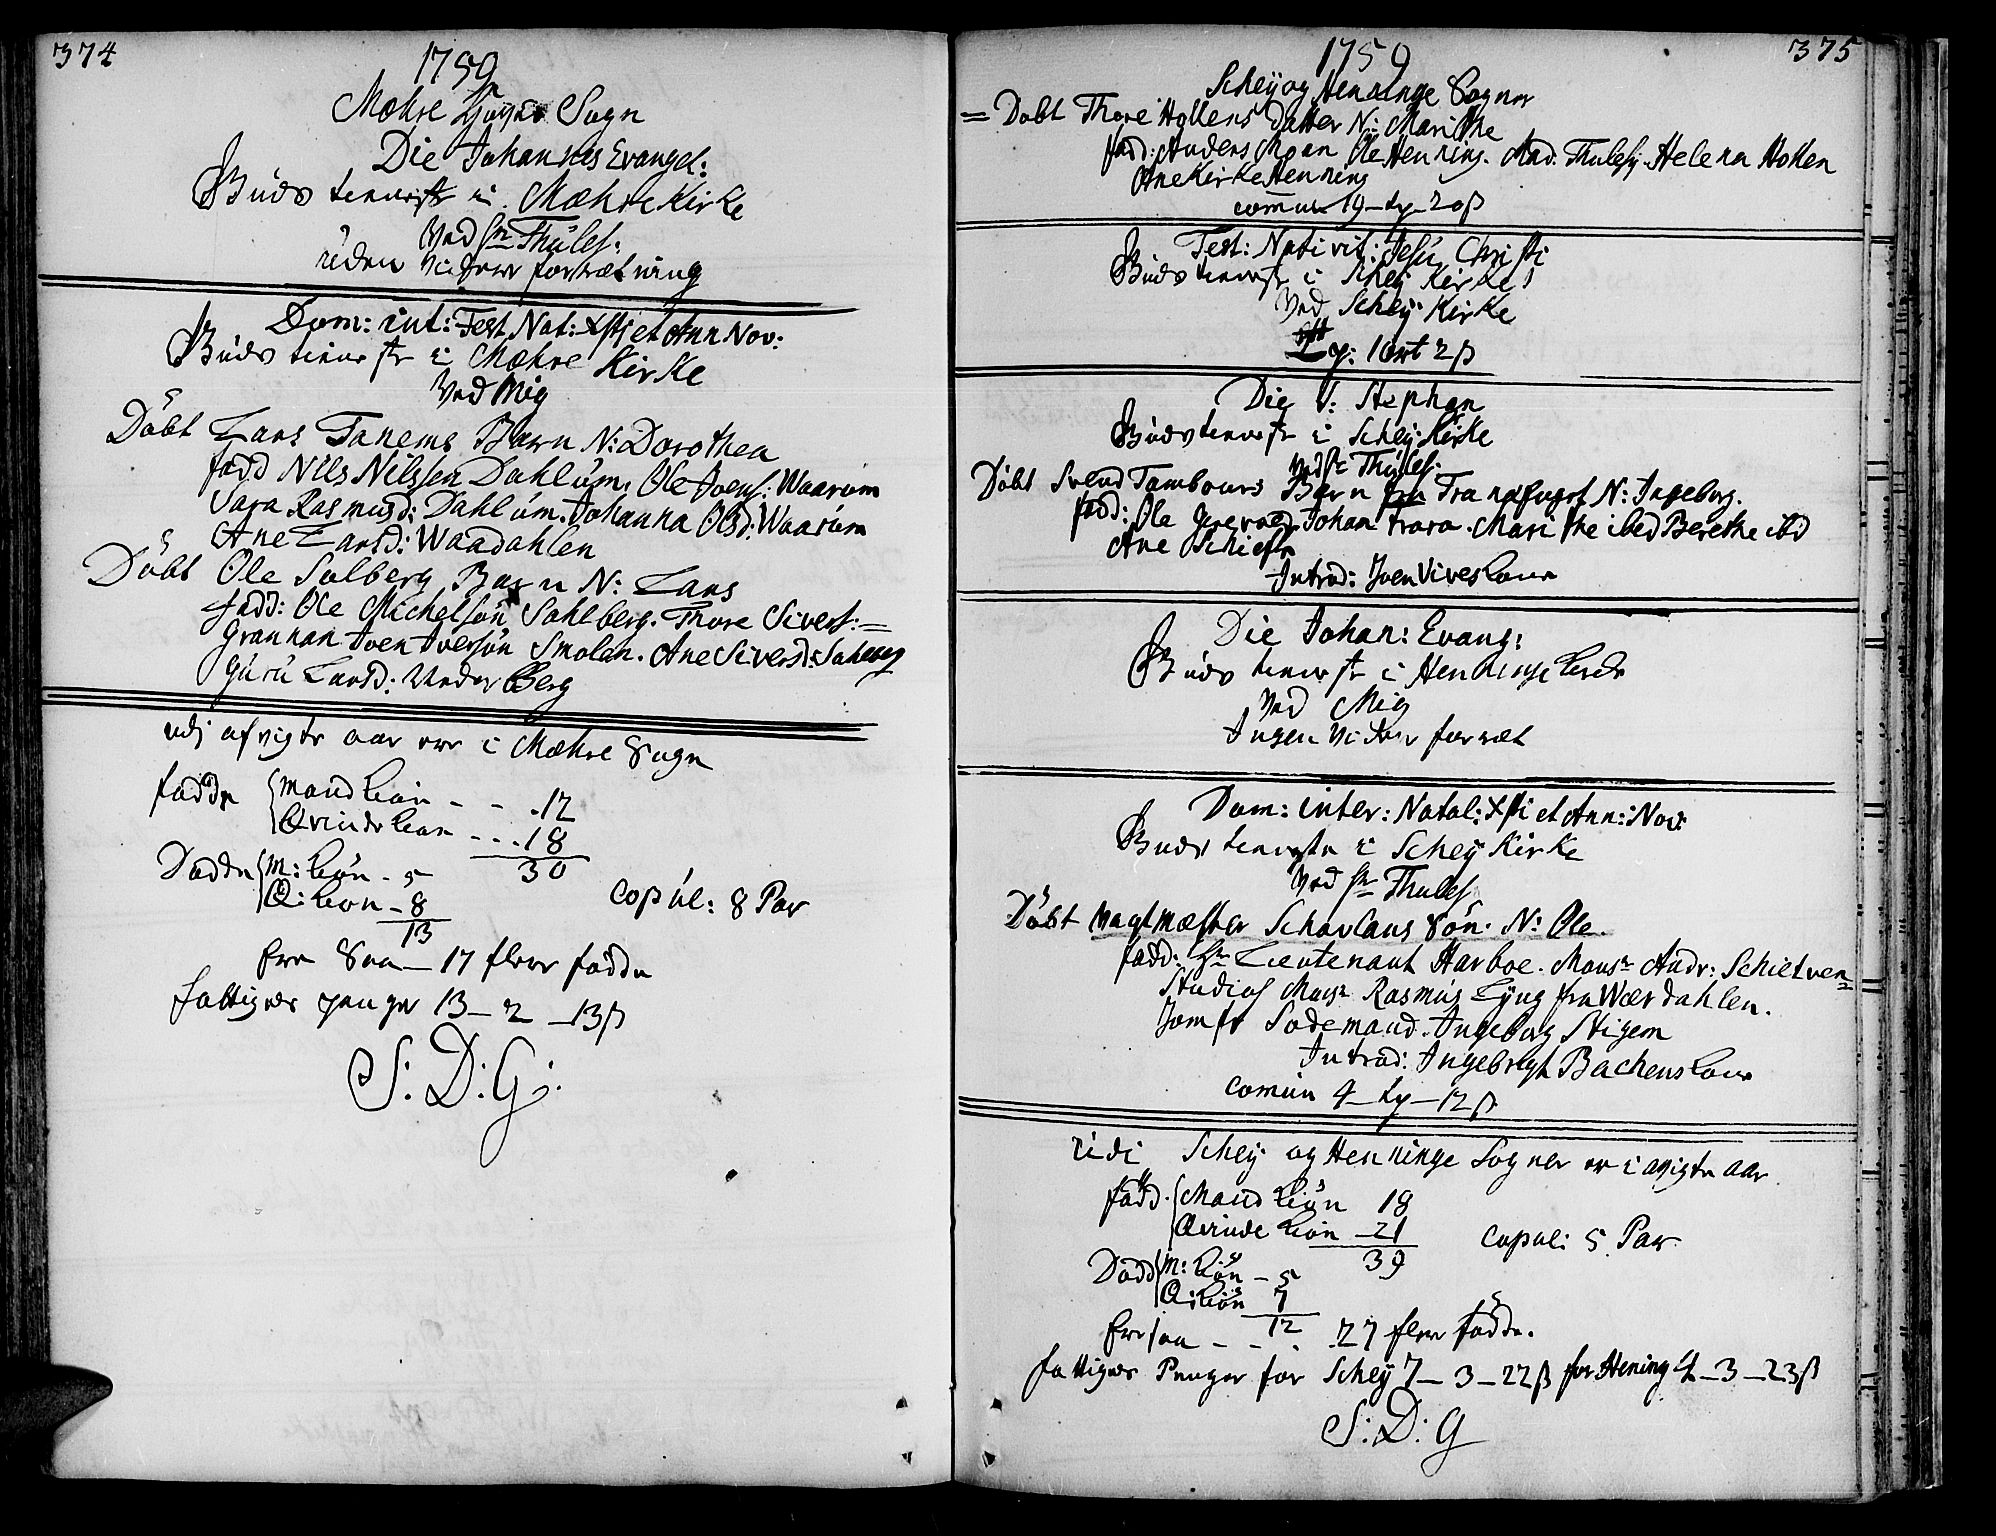 374
1759
Mæhre Sogn
Die Johannes Evangel:
Guds tieniste i Mæhre Kirke
Ved hr Thules:
uden videre forrætning
Dom: int: Fest Nat: Xsti et Ann Nov:
Guds tieniste i Mæhre Kirke
Ved Mig
Döbt Lars Tanems Barn N: Dorothea
fadd Nils Nilssen Dahlúm. Ole Joens: Waarúm
Sara Rasmusd: Dahlúm. Johanna Olsd: Waarúm
Ane Larsd: Waadahlen
Döbt Ole Salberg Barn N: Lars
fadd: Ole Michelsön Sahlberg. Thore Sivers:=
Grannan Iven Iversön Smolan. Ane Siversd: Sahlberg
Gúrú Larsd: Under Berg
udj afvigte aar ere i Mæhre Sogn
födde Mandkiön - - - 12
Qvindekiön - - - 18
30
Dödde M: kiön - 5
Q: kiön - 8
13
Copúl: 8 Par
Ere Saa - 17 flere födde
fattiges penge 13 - 2 - 13ß
S: D: G:
375
1759
Scheÿ og Henninge Sogner
= Döbt Thore Hollens datter N: Marithe
fadd: Anders Moan Ole Henning. Mad: Thulesÿ. Helena Hollen
Ane Kirke Henning
comun 19 - ty - 20ß
Fest: Nativit: Jesú Christi
Guds tieniste i Scheÿ Kirke
Ved Scheÿ Kirke
ty: 1 ort 2ß
Die V: Stephan
Guds tieniste i Scheÿ Kirke
Ved hr Thúles:
Döbt Svend Tambours Barn N: Ingeborg.
fadd: Ole Johan Marithe ibid Berethe ibid
Ane
Introd: Joen Vives kone
Die Johan: Evang:
Guds tieniste i Henninge kirke
Ved Mig
Ingen videre forræt
Dom: inter: Natal: Xsti et Ann: Nov:
Guds tieniste i Scheÿ Kirke
Ved hr Thules
Döbt Vagtmæster Schavlans Sön. N: Ole.
fadd: Hr Lieutenant Harboe. Monsr Andr: Schielven=
Studios Monsr Rasmús Lÿng fra Wærdahlen.
Jomfr Sodemand. Ingeborg Stigem
Introd: Ingebregt Bachens kone
Común 4 - ty - 12ß
udi Scheÿ og Henninge Sogner er i afvigte aar
född Mand kiön 18
Qvinde kiön - 21
39
Copul: 5 Par
Dödd M: kiön - 5
Q: kiön 7
12
Ere saa - - - 27 flere födde.
fattiges Penger for Scheÿ 7 - 3 - 22ß for Hening 4 - 3 - 23ß
S: D: G